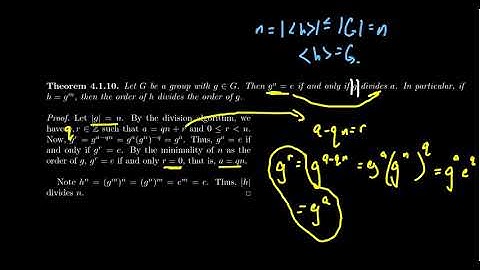 n = |<h>| ≤ |G| = n
<h> = G.
Theorem 4.1.10. Let G be a group with g ∈ G. Then gᵃ = e if and only if divides a. In particular, if
h = gᵐ, then the order of h divides the order of g.
Proof. Let |g| = n. By the division algorithm, we
q, r ∈ ℤ such that a = qn + r and 0 ≤ r < n.
Now, gʳ = gᵃ⁻qⁿ = gᵃ(gⁿ)⁻q = gᵃ. Thus, gᵃ = e if
and only if gʳ = e. By the minimality of n as the
order of g, gʳ = e if and only r = 0, that is, a = qn.
Note hⁿ = (gᵐ)ⁿ = (gⁿ)ᵐ = eᵐ = e. Thus, |h|
divides n. □
a - qn = r
gʳ = gᵃ⁻qⁿ = gᵃ(gⁿ)q = gᵃ eq
= gᵃ